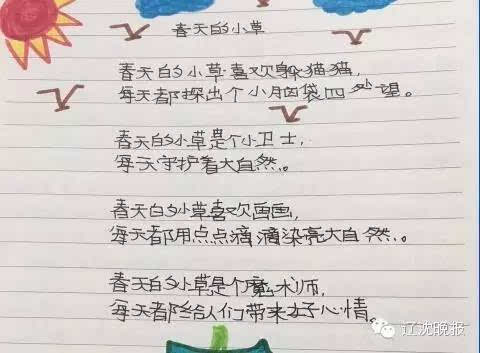 春天的小草
春天的小草喜欢躲猫猫，
每天都探出个小脑袋四处望。
春天的小草是个小卫士，
每天守护着大自然。
春天的小草喜欢画画，
每天都用点点滴滴染亮大自然。
春天的小草是个魔术师，
每天都给人们带来好心情。
辽沈晚报